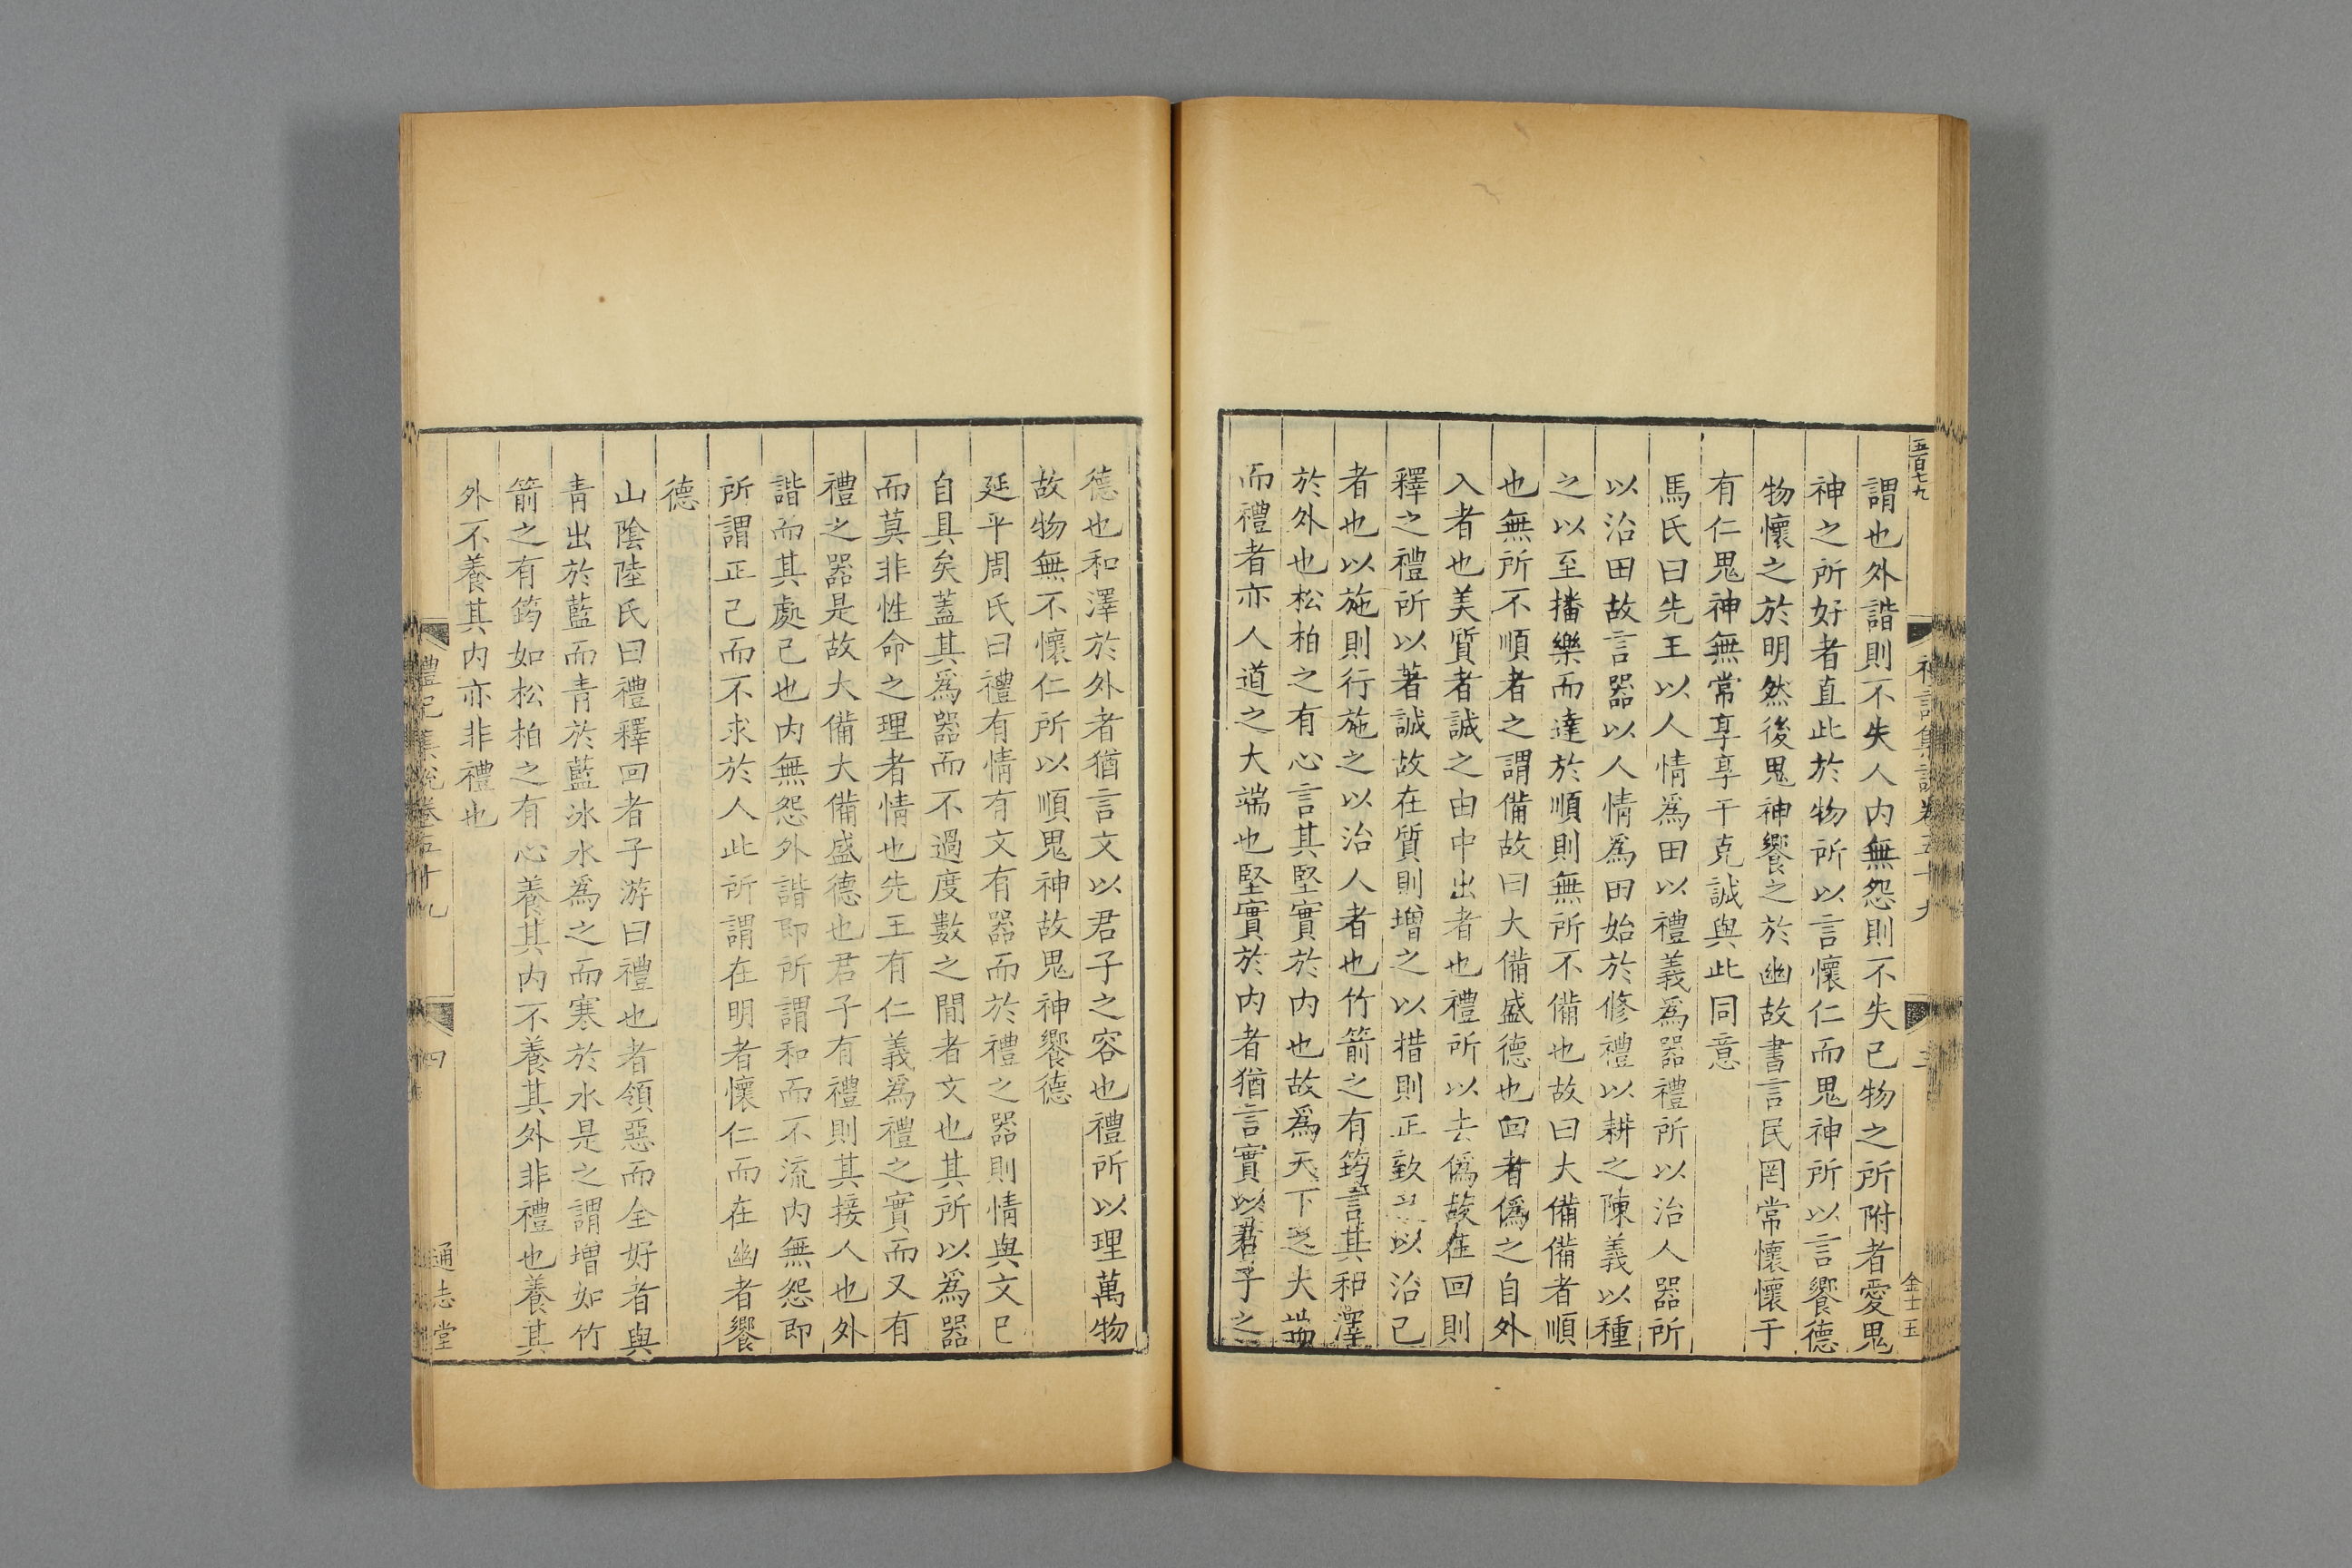 五百七九
禮記集說卷五十九
三
金士玉
謂也外諧則不失人内無怨則不失己物之所附者愛鬼
神之所好者直此於物所以言懷仁而鬼神所以言饗德
物懷之於明然後鬼神饗之於幽故書言民罔常懷懷于
有仁鬼神無常享享于克誠與此同意
馬氏曰先王以人情爲田以禮義爲器禮所以治人器所
以治田故言器以人情爲田始於修禮以耕之陳義以種
之以至播樂而達於順則無所不備也故曰大備備者順
也無所不順者之謂備故曰大備盛德也回者僞之自外
入者也美質者誠之由中出者也禮所以去僞故在回則
釋之禮所以著誠故在質則增之以措則正致以治己
者也以施則行施之以治人者也竹箭之有筠言其和澤
於外也松柏之有心言其堅實於内也故爲天下之大端
而禮者亦人道之大端也堅實於内者猶言實以君子之
德也和澤於外者猶言文以君子之容也禮所以理萬物
故物無不懷仁所以順鬼神故鬼神饗德
延平周氏曰禮有情有文有器而於禮之器則情與文已
自具矣蓋其爲器而不過度數之間者文也其所以爲器
而莫非性命之理者情也先王有仁義爲禮之實而又有
禮之器是故大備大備盛德也君子有禮則其接人也外
諧而其處己也内無怨外諧即所謂和而不流内無怨即
所謂正己而不求於人此所謂在明者懷仁而在幽者饗
德
山陰陸氏曰禮釋回者子游曰禮也者領惡而全好者與
青出於藍而青於藍冰水爲之而寒於水是之謂增如竹
箭之有筠如松柏之有心養其内不養其外非禮也養其
外不養其内亦非禮也
禮記集說卷五十九
四
通志堂